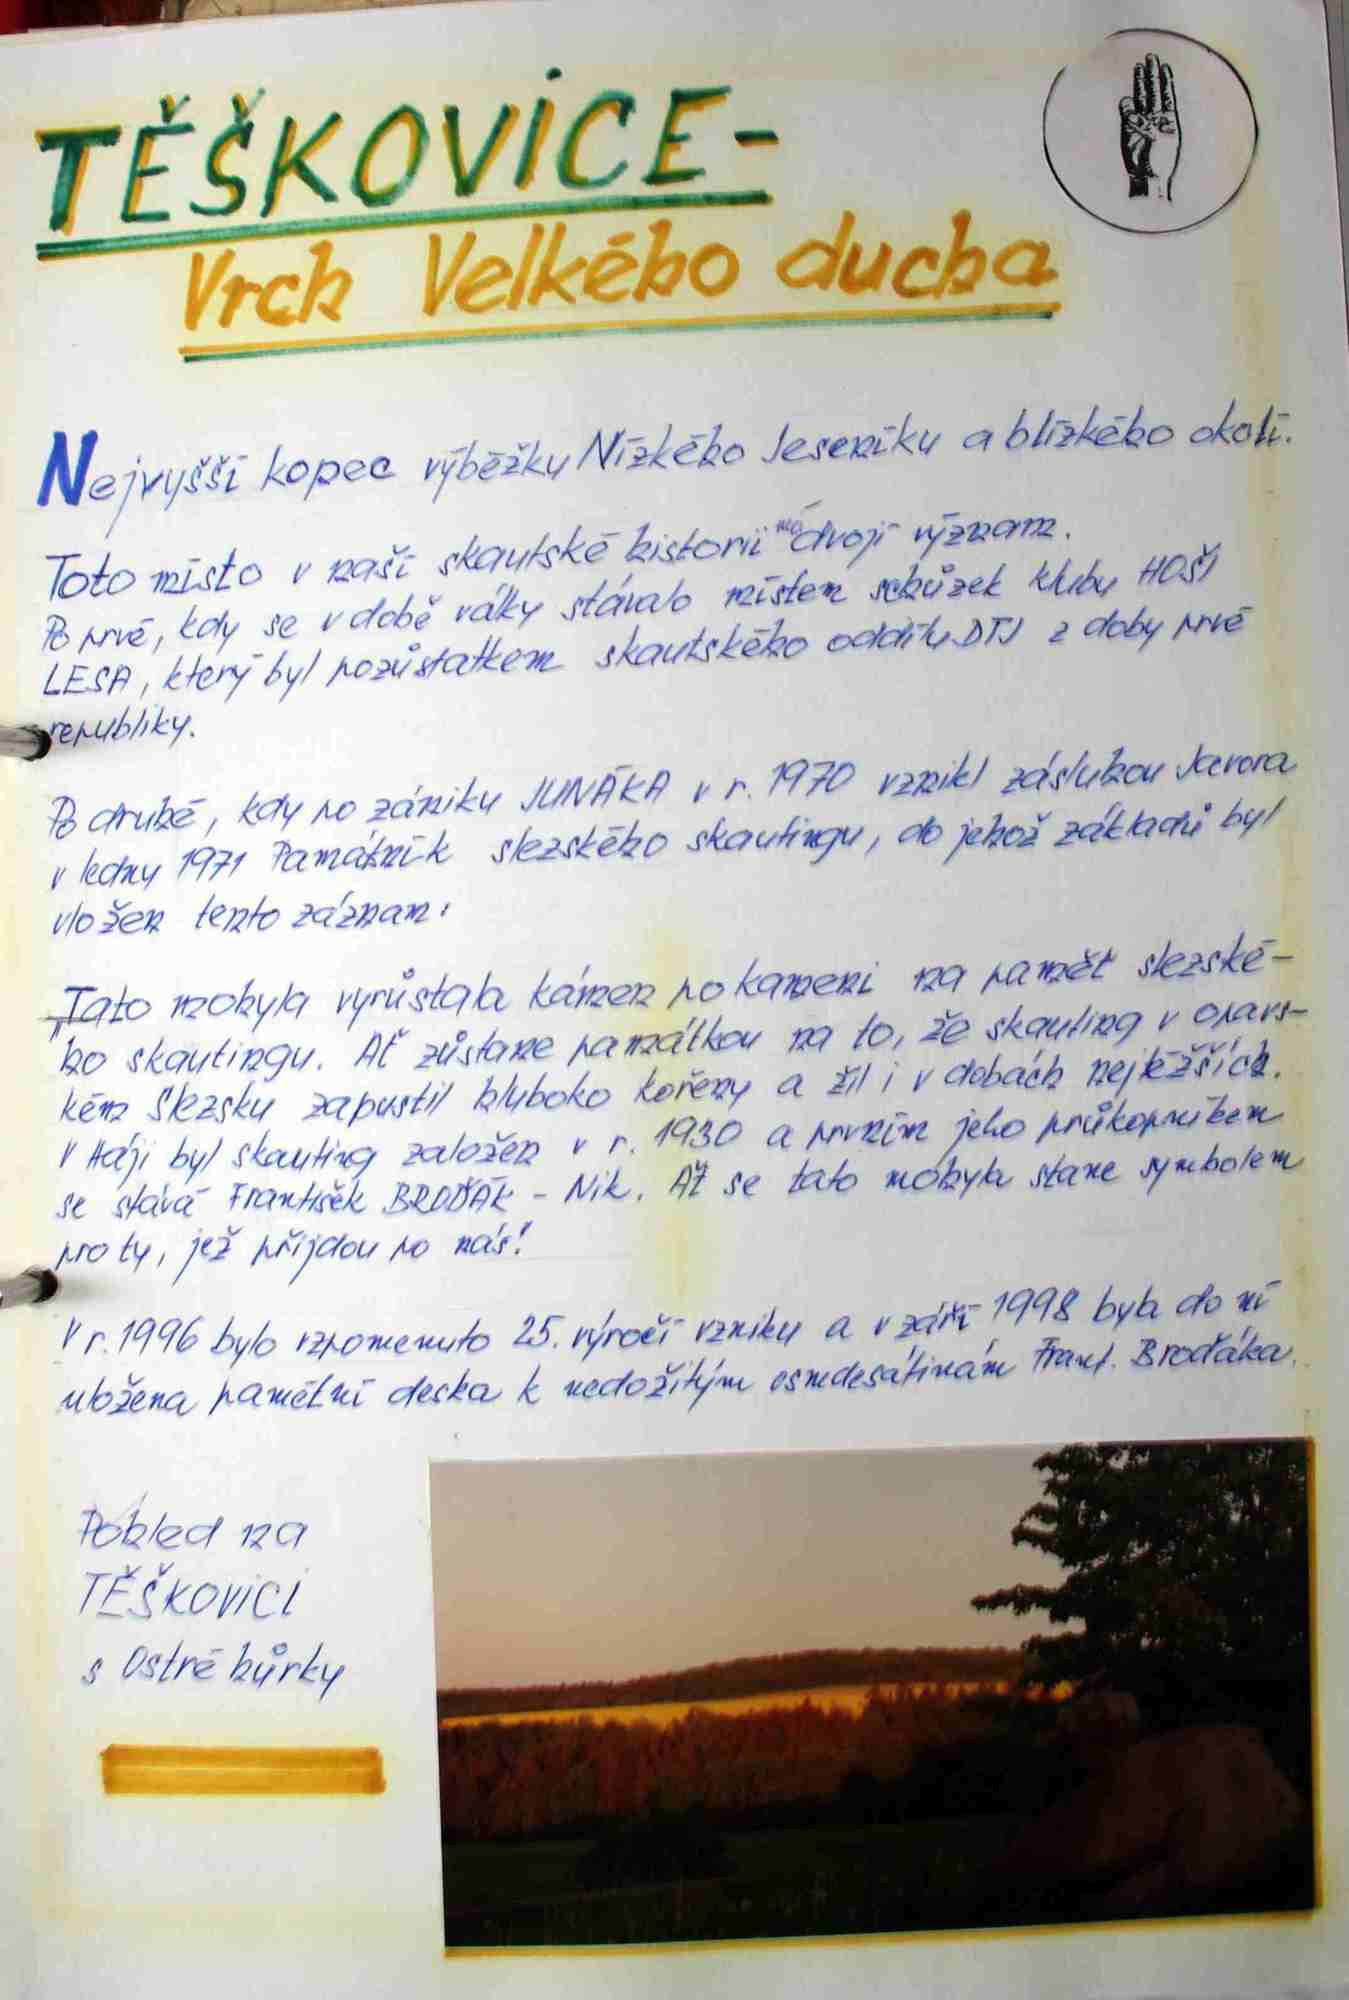 TĚŠKOVICE-
Vrch Velkého ducha
Nejvyšší kopec výběžku Nízkého Jeseníku a blízkého okolí.
Toto místo v naší skautské historii má dvojí význam.
Po prvé, kdy se v době války stávalo místem schůzek klubu HOŠI
LESA, který byl pozůstatkem skautského oddílu DTJ z doby prvé
republiky.
Po druhé, kdy po zániku JUNÁKA v r. 1970 vznikl zásluhou Javora
v lednu 1971 Památník slezského skautingu, do jehož základů byl
vložen tento záznam:
"Tato mohyla vyrůstala kámen po kameni na paměť slezské-
ho skautingu. Ať zůstane památkou na to, že skauting v opavs-
kém Slezsku zapustil hluboko kořeny a žil i v dobách nejtěžších.
V Háji byl skauting založen v r. 1930 a prvním jeho průkopníkem
se stává František BROĎÁK - Nik. Ať se tato mohyla stane symbolem
pro ty, jež přijdou po nás!"
V r. 1996 bylo vzpomenuto 25. výročí vzniku a v září 1998 byla do ní
uložena pamětní deska k nedožitým osmdesátinám Frant. Broďáka.
Pohled na
TĚŠKOVICI
s Ostré hůrky